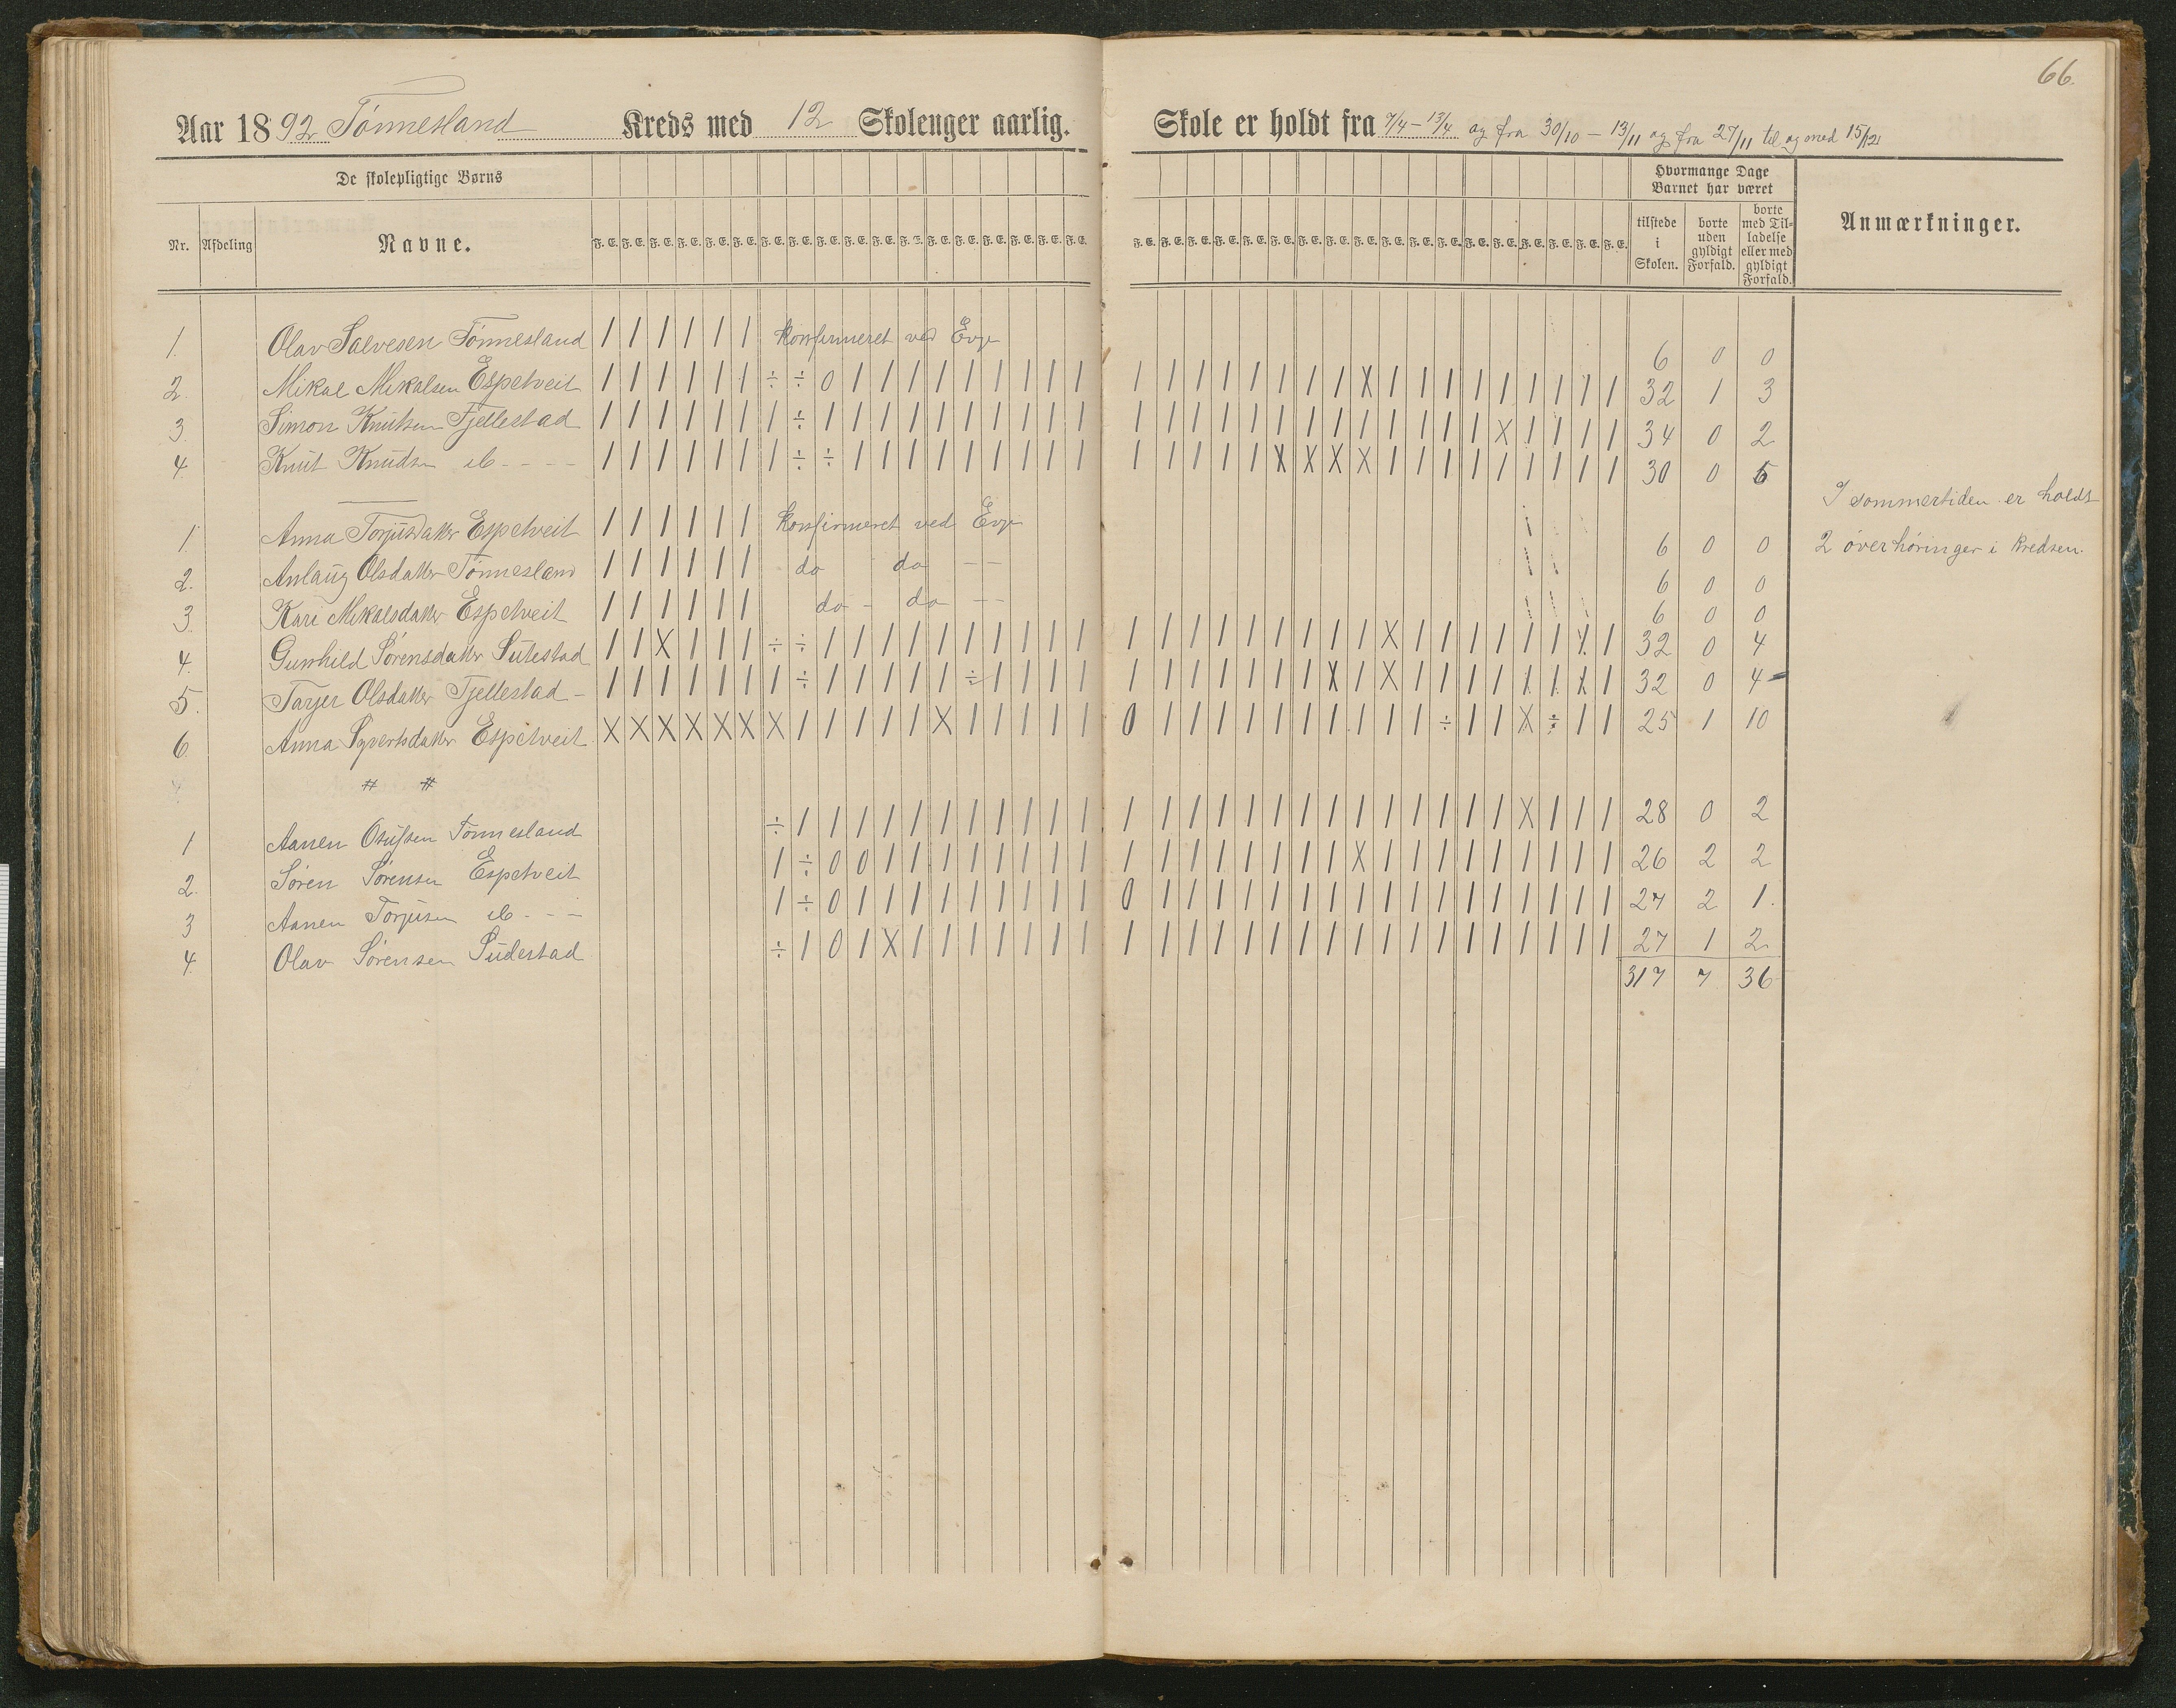 66.
Aar 1892 Tónnesland Kreds med 12 Skoleuger aarlig. Skole er holdt fra 7/4 – 13/4 og fra 30/10 – 13/11 og fra 27/11 til og med 15/12
De skolepligtige Børns
Hvormange Dage Barnet har været
Nr. Afdeling Navne. F. E. F. E. F. E. F. E. F. E. F. E. F. E. F. E. F. E. F. E. F. E. F. E. F. E. F. E. F. E. F. E. F. E. F. E. F. E. F. E. F. E. F. E. F. E. F. E. F. E. F. E. F. E. F. E. F. E. F. E. F. E. F. E. F. E. F. E. F. E. tilstede i Skolen. borte uden gyldigt Forfald. borte med Tilladelse eller med gyldigt Forfald. Anmærkninger.
1. Olav Salvesen Tónnesland / / / / / / konfirmeret ved Evje 6 0 0
2. Mikal Mikalsen Espetveit / / / / / / ÷ ÷ 0 / / / / / / / / / / / / / / / / / / X / / / / / / / / / 32 1 3
3. Simon Knutsen Fjellestad / / / / / / / ÷ / / / / / / / / / / / / / / / / / / / / / / / X / / / / 34 0 2
4. Knut Knudsen ib - - - - / / / / / / / ÷ ÷ / / / / / / / / / / / / / / X X X X / / / / / / / / / 30 0 6
I sommertiden er holdt
1. Anna Torjusdatter Espetveit / / / / / / konfirmeret ved Evje 6 0 0
2 overhóringer i kredsen.
2. Anlaug Olsdatter Tónnesland / / / / / / do do - - 6 0 0
3. Kari Mikalsdatter Espetveit / / / / / / do - do - - 6 0 0
4. Gunhild Sórensdatter Sutestad / / X / / / ÷ ÷ / / / / / / / / / / / / / / / / / / / X / / / / / / / / 32 0 4
5. Tarjer Olsdatter Fjellestad - / / / / / / / ÷ / / / / / ÷ / / / / / / / / / / / X / X / / / / / / X / 32 0 4
6. Anna Syvertsdatter Espetveit X X X X X X X / / / / / X / / / / / 0 / / / / / / / / / / / ÷ / / X ÷ / / 25 1 10
# #
1 Aanen Osufsen Tónnesland ÷ / / / / / / / / / / / / / / / / / / / / / / / / / X / / / 28 0 2
2. Sóren Sórensen Espetveit / ÷ 0 0 / / / / / / / / / / / / / / / / X / / / / / / / / / 26 2 2
3 Aanen Torjusen ib - - - / ÷ 0 / / / / / / / / / 0 / / / / / / / / / / / / / / / / / 27 2 1.
4. Olav Sórensen Sudestad ÷ / 0 / X / / / / / / / / / / / / / / / / / / / / / / / / / 27 1 2
317 7 36